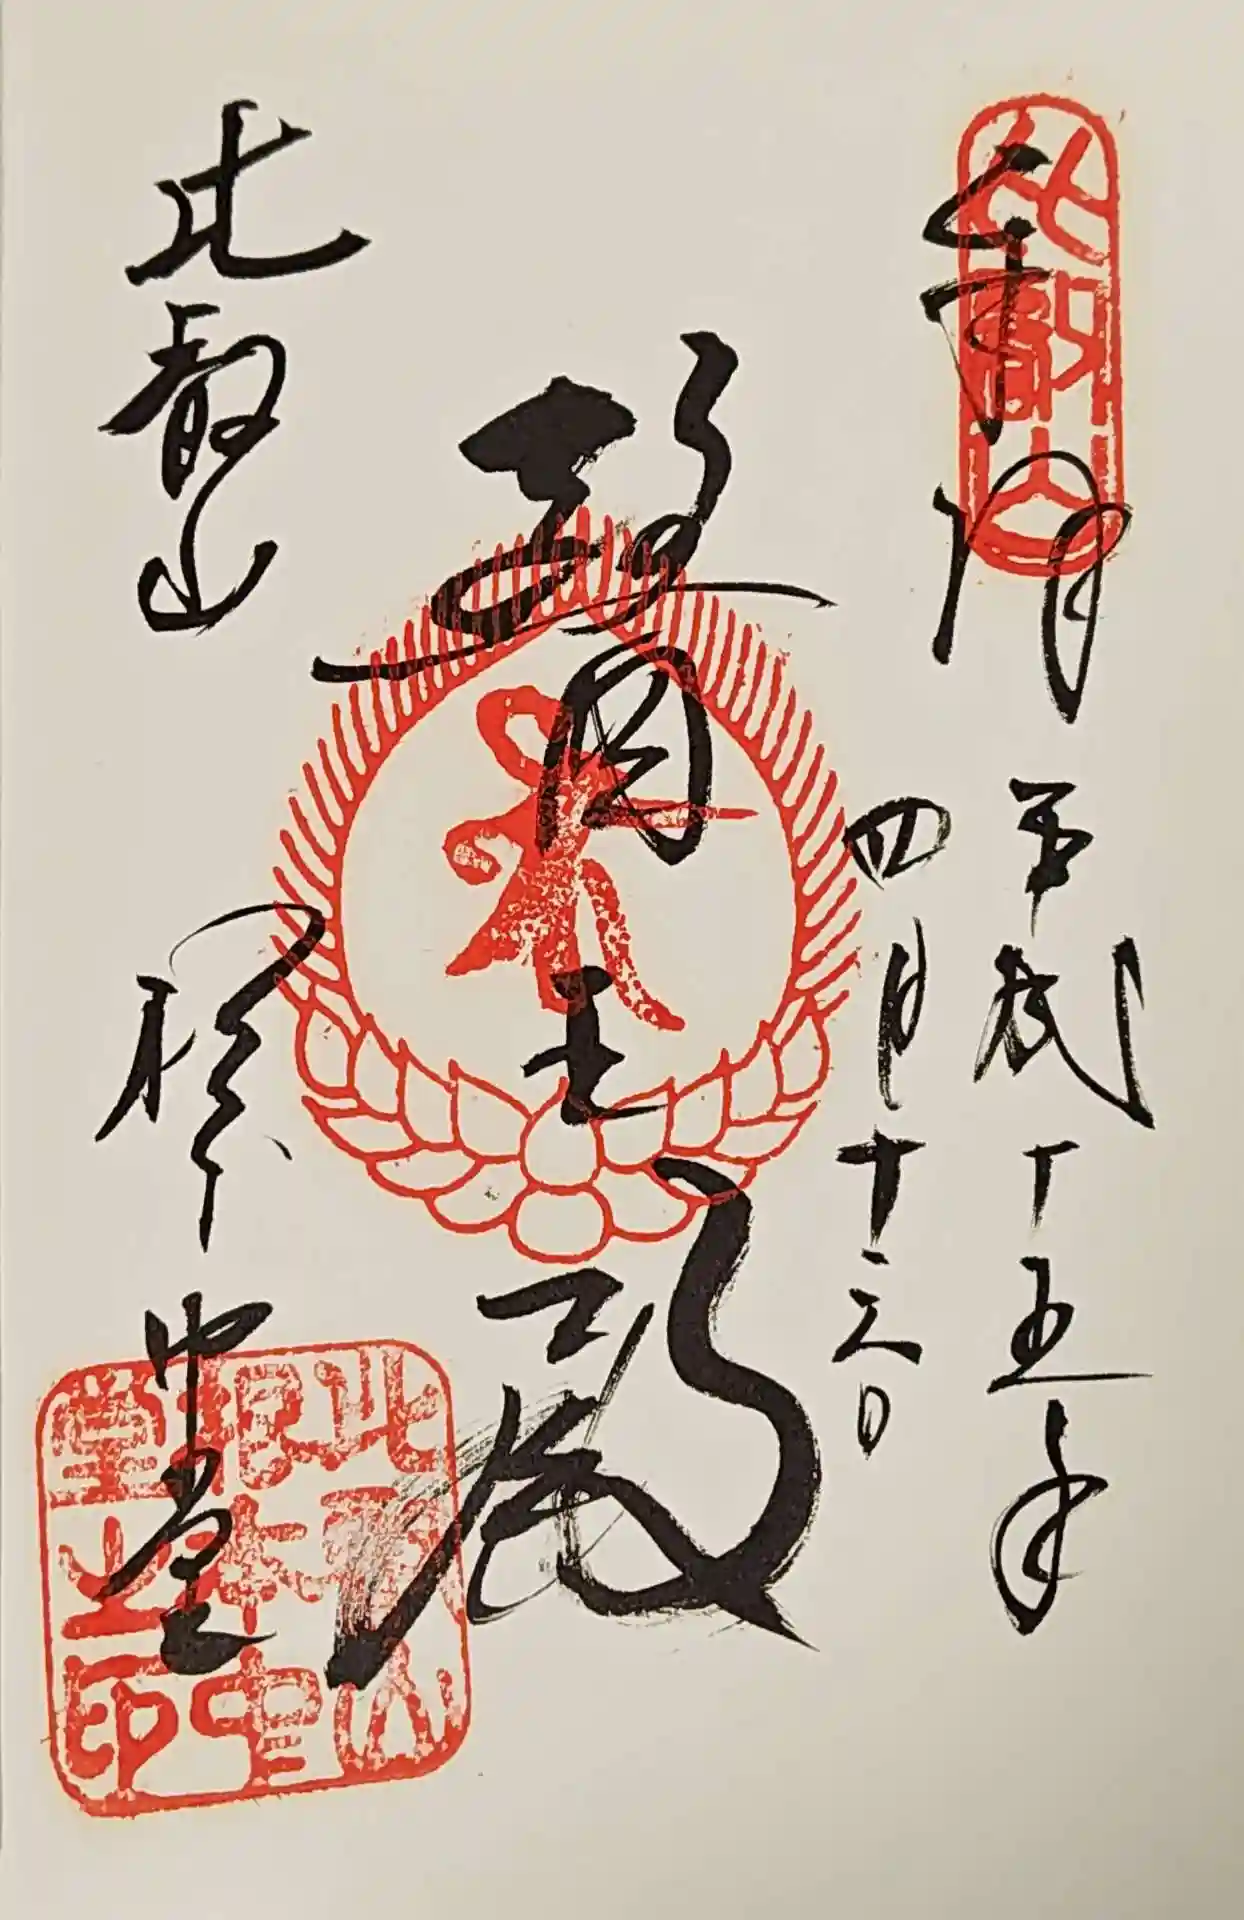 比叡山
奉拝
平成十五年
四月十三日
醫王殿
比叡山 根本中堂
比叡山
根本中
堂之印